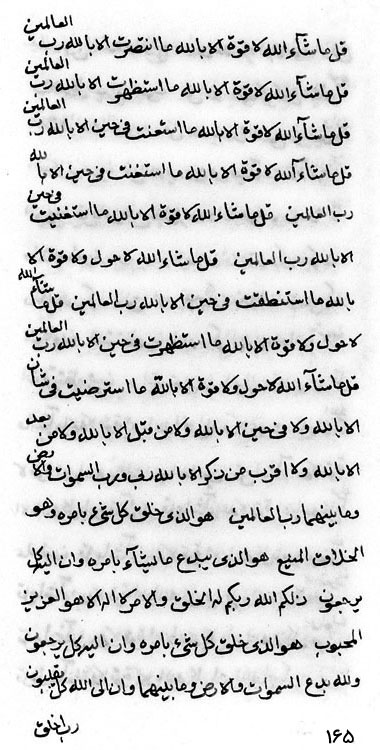 قل ما شآء الله لا قوة الا بالله ما انتصرت الا بالله رب العالمين
قل ما شآء الله لا قوة الا بالله ما استظهرت الا بالله رب العالمين
قل ما شآء الله لا قوة الا بالله ما استعنت فى حين الا بالله رب العالمين
قل ما شآء الله لا قوة الا بالله ما استغنت فى حين الا بالله
رب العالمين قل ما شآء الله لا قوة الا بالله ما استغنيت فى حين
الا بالله رب العالمين قل ما شآء الله لا حول ولا قوة الا
بالله ما استنطقت فى حين الا بالله رب العالمين قل ما شآء الله
لا حول ولا قوة الا بالله ما استظهرت فى حين الا بالله رب العالمين
قل ما شآء الله لا حول ولا قوة الا بالله ما استرضيت فى شان
الا بالله ولا فى حين الا بالله ولا من قبل الا بالله ولا من بعد
الا بالله ولا اقرب من ذكر الا بالله ربى ورب السموات والارض
وما بينهما رب العالمين هو الذى خلق كل شئ بامره وهو
الخلاق المنيع هو الذى يبدع ما يشآء بامره وان اليه كل
يرجعون ذلكم الله ربكم له الخلق والامر لا اله الا هو العزيز
المحبوب هو الذى خلق كل شئ بامره وان اليه كل يرجعون
ولله بدع السموات والارض وما بينهما وان الى الله كل ينقلبون
رب خلق
۱۶۵